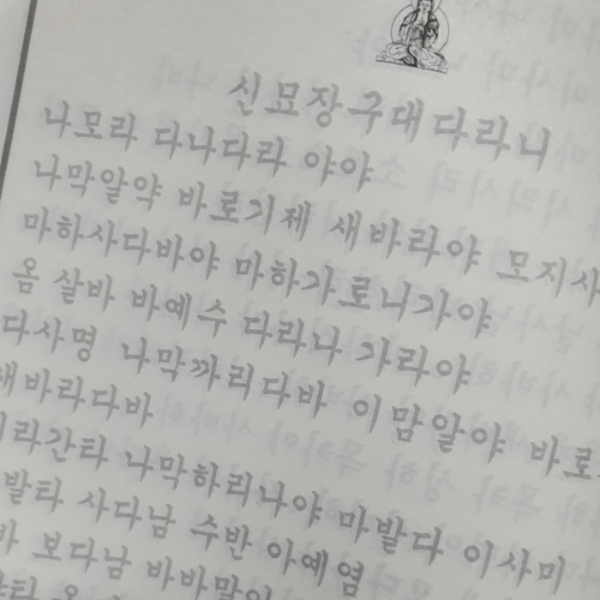 신묘장구대다라니
나모라 다나다라 야야
나막알약 바로기제 새바라야 모지사
마하사다바야 마하가로니가야
옴 살바 바예수 다라나 가라야
다사명 나막까리다바 이맘알야 바로
새바라다바
라간타 나막하리나야 마발다 이사미
발타 사다남 수반 아예염
바 보다남 바바말아